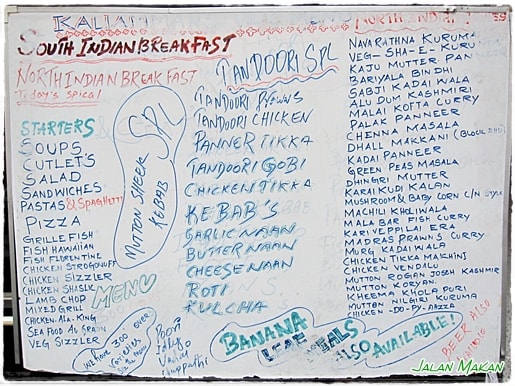 SOUTH INDIAN BREAKFAST
NORTH INDIAN BREAKFAST
Today's Spical
STARTERS
SOUPS
CUTLET'S
SALAD
SANDWICHES
PASTAS & SPAGHETTI
PIZZA
GRILLE FISH
FISH HAWAIIAN
FISH FLORENTINE
CHICKEN STROGONUFF
CHICKEN SIZZLER
CHICKEN SHASLIK
LAMB CHOP
MIXED GRILL
CHICKEN-ALA-KING
SEA FOOD AU GRATIN
VEG SIZZLER
MENU
MUTTON SHEEK
KEBAB
SPL
TANDOORI SPL
TANDOORI PROWNS
TANDOORI CHICKEN
PANNER TIKKA
TANDOORI GOBI
CHICKEN TIKKA
KEBAB'S
GARLIC NAAN
BUTTER NAAN
CHEESE NAAN
ROTI
KULCHA
NAVARATHNA KURUMA
VEG-SHA-E-KURU
KAJU MUTTER PAN
KARIYALA BINDHI
SABJI KADAI WALA
ALU DUM KASHMIRI
MALAI KOFTA CURRY
PALAK PANNEER
CHENNA MASALA
DHALL MAKKANI
KADAI PANNEER
GREEN PEAS MASALA
DHINGRI MUTTER
KARAIKUDI KALAN
MUSHROOM & BABY CORN C/N STYLE
MACHILI KHOLIWALA
MALA BAR FISH CURRY
KARIVEPPILAI ERA
MADRAS PRAWN'S CURRY
MURG KADAI WALA
CHICKEN TIKKA MAKHINI
CHICKEN VENDALU
MUTTON ROGAN JOSH KASHMIR
MUTTON KORYAN
KHEEMA KHOLA PURI
MUTTON NILGIRI KURUMA
CHICKEN-DO-PY-AZZA
WE HAVE 300 OVER
Poori
Idly
Vadai
BANANA
LEAF MEALS
ALSO AVAILABLE!
BEER ALSO
JALAN MAKAN